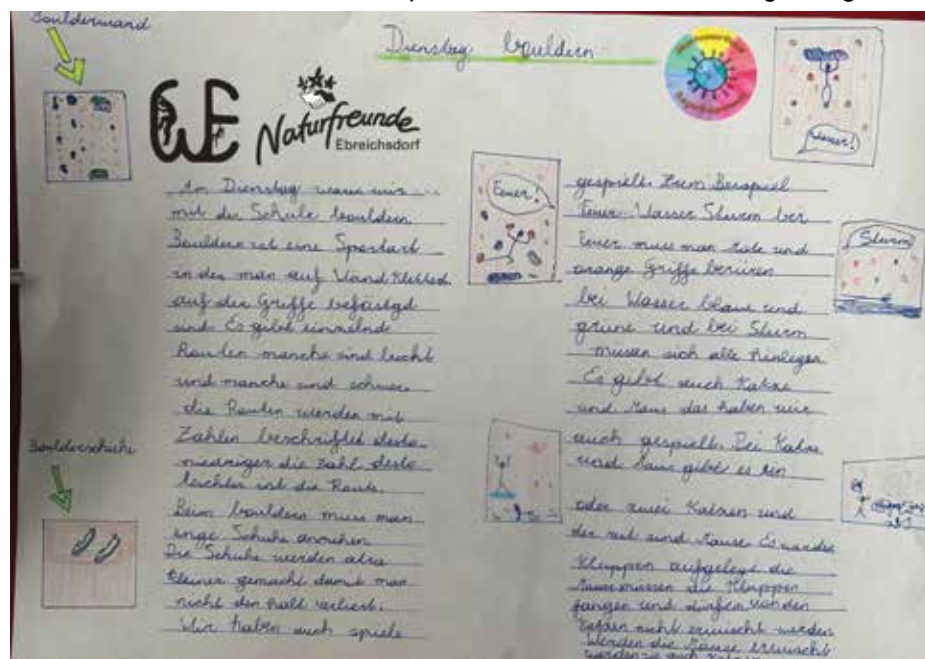 Boulderwand
Dienstag bouldern
Naturfreunde
Ebreichsdorf
Wasser!
Am Dienstag waren wir
mit der Schule bouldern
Bouldern ist eine Sportart
in der man auf Wand Kletted
auf der Griffe befästgd
sind. Es gibt einnelnd
Routen manche sind leicht
und manche sind schwer.
die Routen werden mit
Zahlen beschriftet desto
niedriger die Zahl desto
leichter ist die Route.
Beim bouldern muss man
enge Schuhe anziehen
Die Schuhe werden alra
kleiner gemacht damit man
nicht den halt verliert.
Wir haben auch spiele
Boulderschuhe
Feuer!
gespielt. Zum Beispiel
Feuer Wasser Sturm bei
Feuer muss man rote und
orange Griffe berüren
bei Wasser blaue und
grüne und bei Sturm
müssen sich alle hinlegen
Es gibt auch Katze
und Maus das haben wir
auch gespielt. Bei Katze
und Maus gibt es ein
oder zwei Katzen und
der rest sind Mäuse. Es werden
Kluppen aufgelegt die
Mäuse müssen die Kluppen
fangen und dürfen von den
Katzen nicht erwischt werden
Werden die Mäuse erwischt
werden sie auch Katzen
Sturm